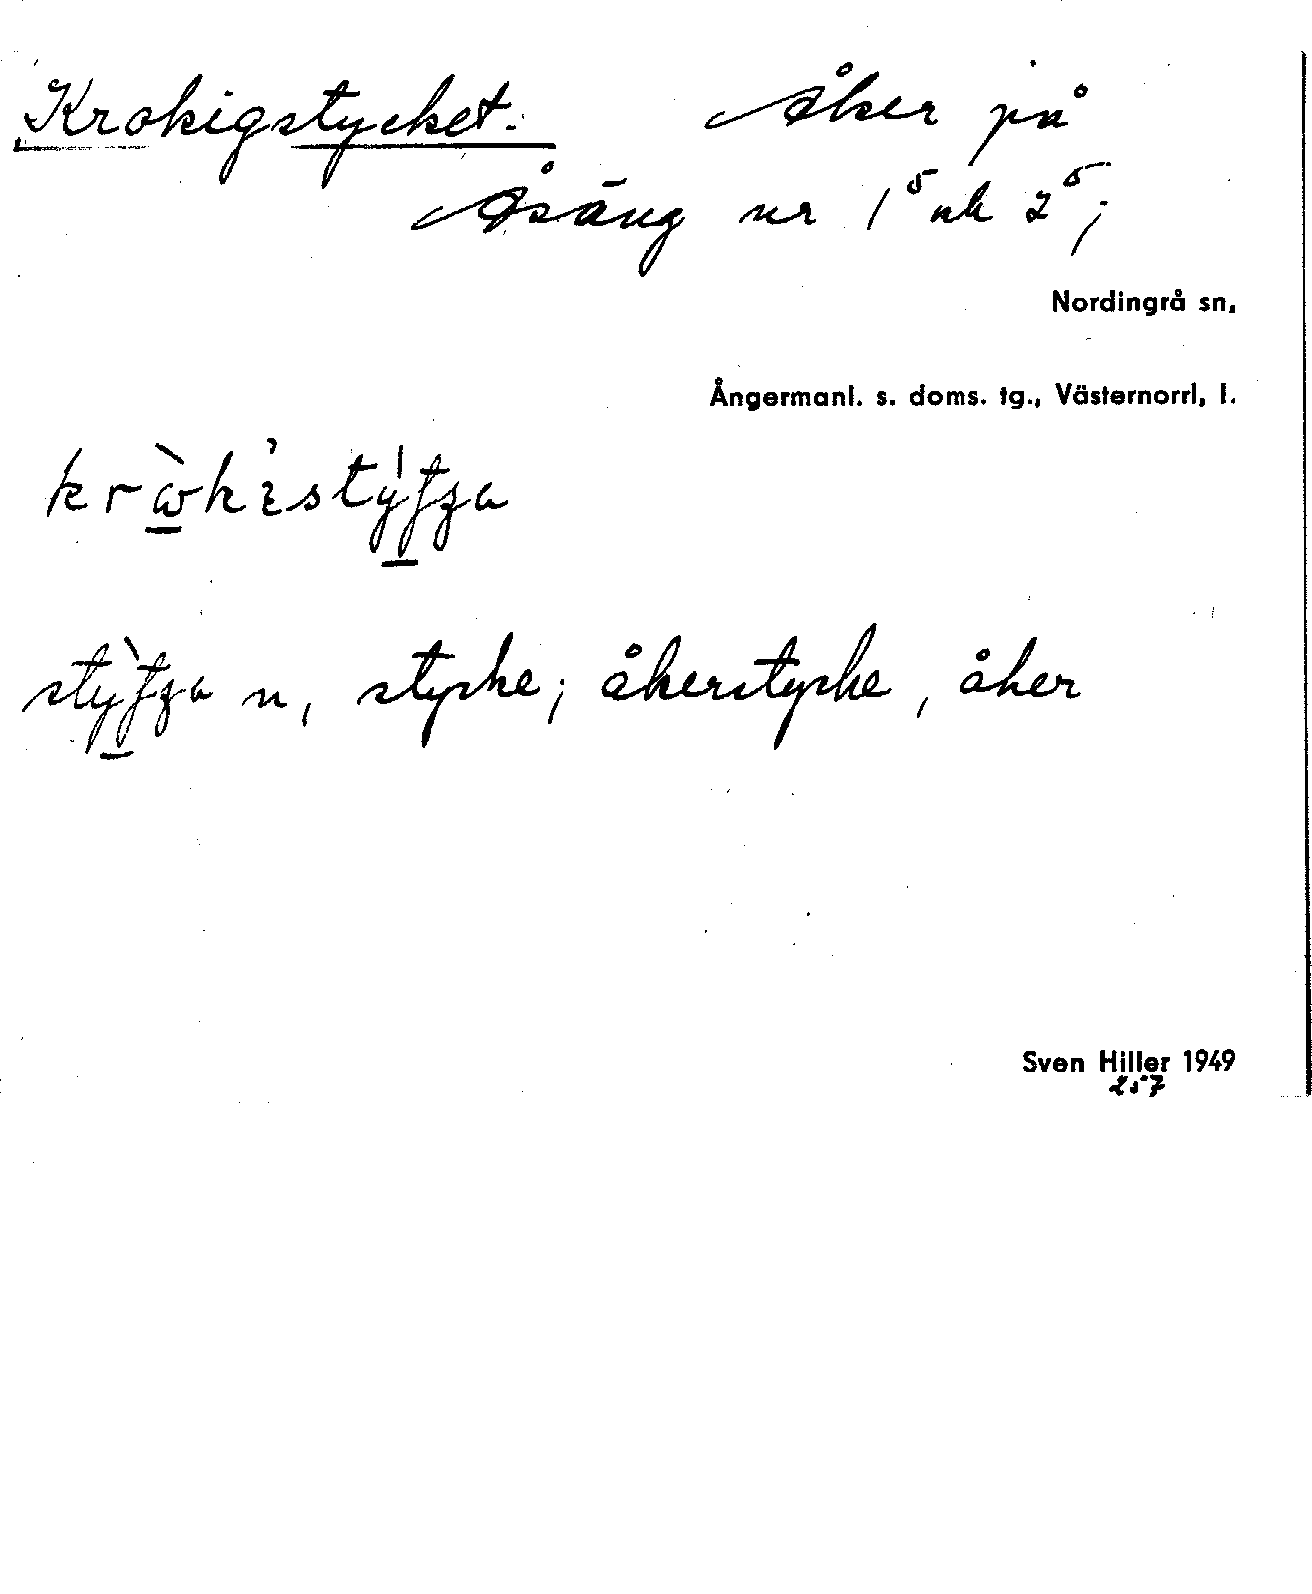 Krokigstycket. Åker på
Åsäng nr 1⁵ och 2⁵;
Nordingrå sn.
Ångermanl. s. doms. tg., Västernorrl. l.
n, stycke; åkerstycke, åker
Sven Hiller 1949
257